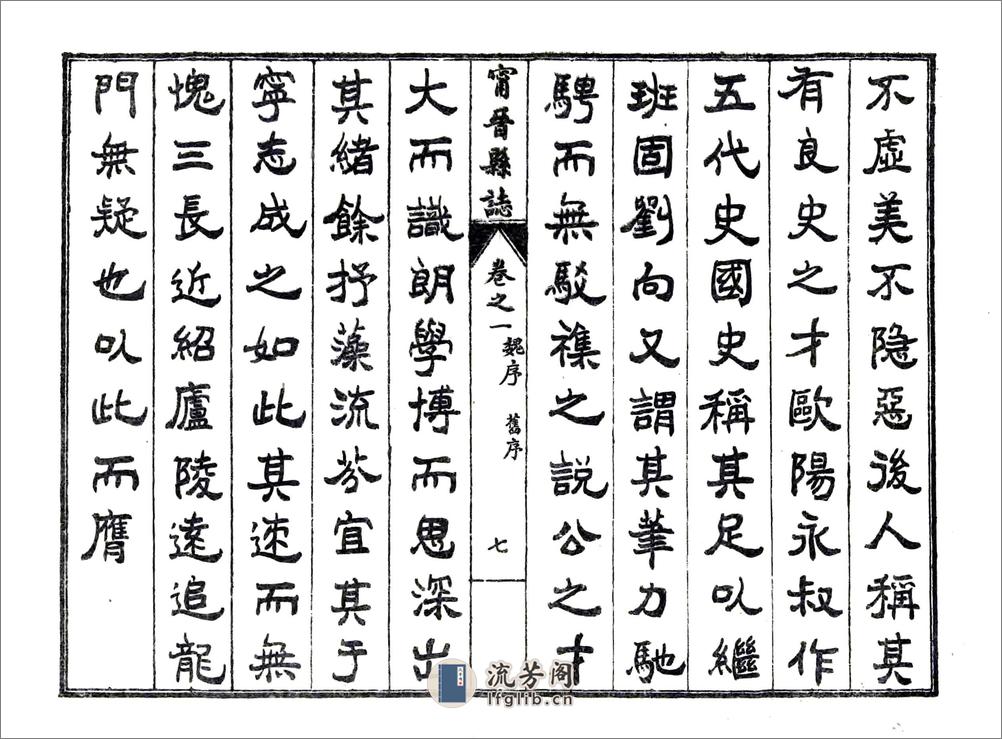 不虛美不隐惡後人稱其
有良史之才歐陽永叔作
五代史國史稱其足以繼
班固劉向又謂其筆力馳
騁而無駁襍之説公之才
甯晉縣誌
卷之一
魏序 舊序
七
大而識朗學博而思深出
其緒餘抒藻流芬宜其于
寧志成之如此其速而無
愧三長近紹廬陵遠追龍
門無疑也以此而膺
流芳阁
lfglib.cn